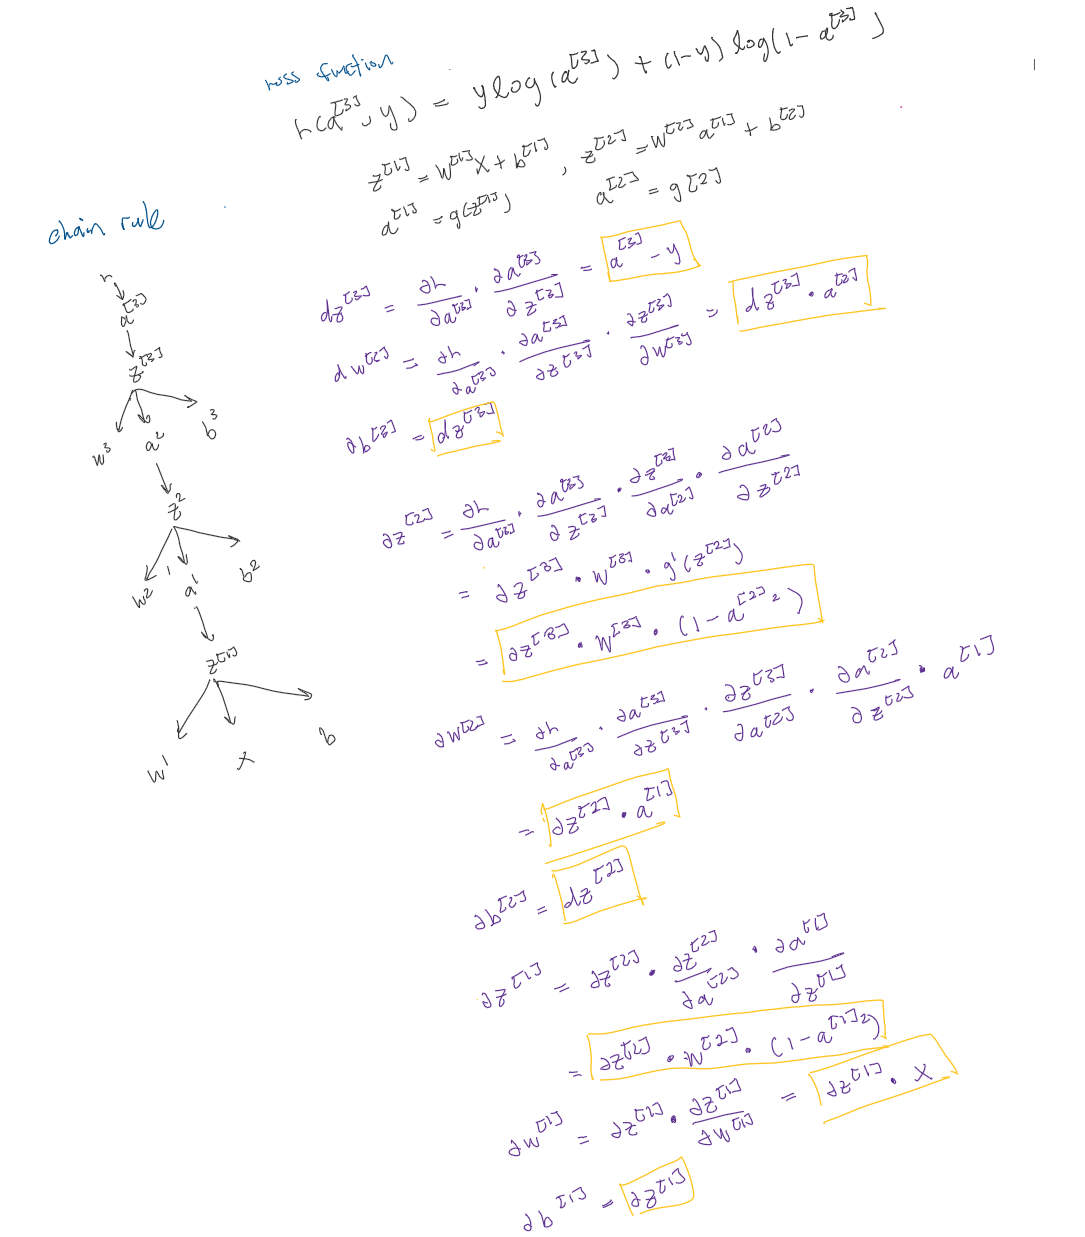 loss function
L(a^[3], y) = y log(a^[3]) + (1-y) log(1 - a^[3])
z^[1] = W^[1]X + b^[1] , z^[2] = W^[2]a^[1] + b^[2]
a^[1] = g(z^[1]) a^[2] = g[2]
chain rule
L
a^[3]
z^[3]
w^3 a^2 b^3
z^2
w^2 a^1 b^2
z^[1]
w^1 x b
dz^[3] = ∂L/∂a^[3] · ∂a^[3]/∂z^[3] = a^[3] - y
dw^[2] = ∂L/∂a^[3] · ∂a^[3]/∂z^[3] · ∂z^[3]/∂w^[3] = dz^[3] · a^[2]
∂b^[3] = dz^[3]
∂z^[2] = ∂L/∂a^[3] · ∂a^[3]/∂z^[3] · ∂z^[3]/∂a^[2] · ∂a^[2]/∂z^[2]
= ∂z^[3] · W^[3] · g'(z^[2])
= ∂z^[3] · W^[3] · (1 - a^[2]2)
∂w^[2] = ∂L/∂a^[3] · ∂a^[3]/∂z^[3] · ∂z^[3]/∂a^[2] · ∂a^[2]/∂z^[2] · a^[1]
= ∂z^[2] · a^[1]
∂b^[2] = dz^[2]
∂z^[1] = ∂z^[2] · ∂z^[2]/∂a^[2] · ∂a^[1]/∂z^[1]
= ∂z^[2] · W^[2] · (1 - a^[1]2)
∂w^[1] = ∂z^[1] · ∂z^[1]/∂w^[1] = ∂z^[1] · x
∂b^[1] = ∂z^[1]